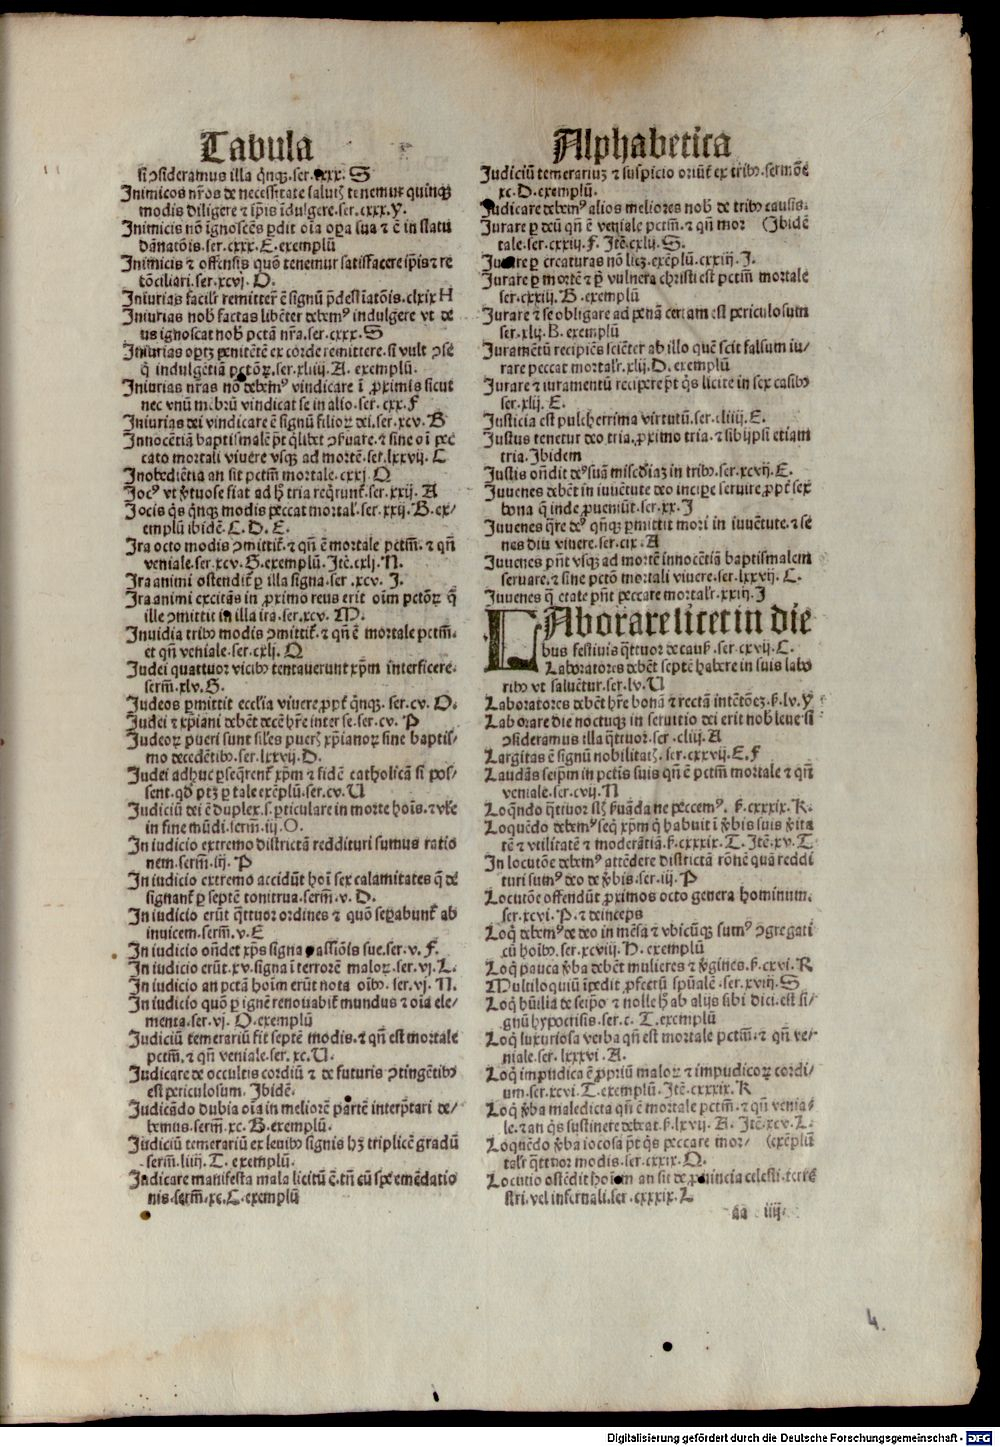 Tabula
si ↄsideramus illa q̃nqꝫ.ser.cxxx. S
Inimicos nr̃os de necessitate salutꝫ tenemur quinqꝫ
modis diligere ⁊ ip̃is ĩdulgere.ser.cxxx.Y.
Inimicis nõ ignoscẽs ꝑdit oĩa oꝑa sua ⁊ ẽ in statu
dãnatõis.ser.cxxx.E.exemplũ
Inimicis ⁊ offensis quõ tenemur satisfacere ip̃is ⁊ re
cõciliari.ser.xcvj.O.
Iniurias facilr̃ remitter̃ ẽ signũ p̃destĩatõis.clxix H
Iniurias nob̃ factas libẽter debemꝰ indulgere vt de
us ignoscat nob̃ pctã nr̃a.ser.cxxx.S
Iniurias oꝑtꝫ penitẽtẽ ex corde remittere.si vult ↄse
q̃ indulgẽtiã pctõꝝ.ser.xliiij.A. exemplũ.
Iniurias nr̃as nõ debemꝰ vindicare ĩ ꝓximis sicut
nec vnũ mẽbrũ vindicat se in alio.ser. cxx.F
Iniurias dei vindicare ẽ signũ filioꝝ dei.ser.xcv. B
Innocẽtiã baptismalẽ p̃t q̃libet ↄseruare.⁊ sine oĩ pec
cato mortali viuere vsqꝫ ad mortẽ.ser.lxxvij. C
Inobediẽtia an sit pctm̃ mortale.cxxj.Q
Jocꝰ vt ṽtuose fiat ad h̃ tria req̃runt̃.ser.xxij. A
Jocis q̃s q̃nqꝫ modis peccat mortal̃.ser.xxij.B.ex/
emplũ ibidẽ.C.D.E.
Ira octo modis ↄmittit̃.⁊ qñ ẽ mortale pctm̃.⁊ qñ
veniale.ser.xcv.G.exemplũ.Itẽ.cxlj.N.
Ira animi ostendit̃ ꝑ illa signa.ser.xcv. J.
Ira animi excitãs in ꝓximo reus erit oĩm pctõꝝ q̃
ille ↄmittit in illa ira.ser.xcv. M.
Inuidia tribꝰ modis ↄmittit̃.⁊ qñ ẽ mortale pctm̃.
et qñ veniale.ser.cxlj. Q
Judei quattuor vicibꝰ tentauerunt xp̃m interficere.
serm̃.xlv.G.
Judeos ꝑmittit eccl̃ia viuere ꝓpt̃ q̃nqꝫ. ser.cv. O.
Judei ⁊ xp̃iani debẽt decẽ hr̃e inter se.ser.cv. P
Judeoꝝ pueri sunt sil̃es puerꝫ xp̃ianoꝝ sine baptis/
mo decedẽtibꝰ.ser.lxxvij.D.
Judei adhuc ꝑseq̃rent̃ xp̃m ⁊ fidẽ catholicã si pos/
sent.qd̃ ptꝫ ꝑ tale exẽplũ.ser.cv.U
Judiciũ dei ẽ duplex.s.ꝑticulare in morte hoĩs.⁊ vl̃e
in fine mũdi.serm̃.iij.O.
In iudicio extremo districtã reddituri sumus ratio
nem.serm̃.iij. P
In iudicio extremo accidũt hoĩ sex calamitates q̃ de
signant̃ ꝑ septẽ tonitrua.serm̃.v.D.
In iudicio erũt q̃ttuor ordines ⁊ quõ seꝑabunt̃ ab
inuicem.serm̃.v.E
In iudicio oñdet xp̃s signa passiõis sue.ser.v. F.
In iudicio erũt.xv.signa ĩ terrorẽ maloꝝ.ser.vj.L.
In iudicio an pctã hoĩm erũt nota oĩbꝰ.ser.vj.N.
In iudicio quõ ꝑ ignẽ renouabit̃ mundus ⁊ oĩa ele/
menta.ser.vj. O.exemplũ
Judiciũ temerariũ fit septẽ modis.⁊ qñ est mortale
pctm̃.⁊ qñ veniale.ser.xc.U.
Judicare de occultis cordiũ ⁊ de futuris ↄtingẽtibꝰ
est periculosum. Ibidẽ.
Judicãdo dubia oĩa in meliorẽ partẽ interp̃tari de/
bemus.serm̃.xc.B.exemplũ.
Judiciũ temerariũ ex leuibꝰ signis hꝫ triplicẽ gradũ
serm̃.liiij.T. exemplũ.
Judicare manifesta mala licitũ ẽ.tñ cũ spẽ emẽdatio
nis.serm̃.xc.C.exemplũ
Alphabetica
Judiciũ temerariuꝫ ⁊ suspicio oriũt̃ ex tribꝰ.sermõe
xc.D.exemplũ.
Judicare debemꝰ alios meliores nob̃ de tribꝰ causis.
Jurare ꝑ deũ qñ ẽ veniale pctm̃.⁊ qñ mor (Ibidẽ
tale.ser.cxxiij.F. Itẽ.cxlij.S.
Jurare ꝑ creaturas nõ licꝫ.exẽplũ.cxxiij. J.
Jurare ꝑ mortẽ ⁊ ꝑ vulnera christi est pctm̃ mortale
ser.cxxiij.B.exemplũ
Jurare ⁊ se obligare ad penã certam est periculosum
ser.xlij.B.exemplũ
Juramẽtũ recipiẽs sciẽter ab illo quẽ scit falsum iu/
rare peccat mortalr̃.xlij.D.exemplũ
Jurare ⁊ iuramentũ recipere p̃t q̃s licite in sex casibꝰ
ser.xlij. E.
Justicia est pulcherrima virtutũ.ser.cliiij.E.
Justus tenetur deo tria.ꝓximo tria.⁊ sibijpsi etiam
tria.Ibidem
Justis oñdit deꝰ suã misc̃diaꝫ in tribꝰ.ser.xcvij.E.
Juuenes debẽt in iuuẽtute deo incipe seruire ꝓpt̃ sex
bona q̃ inde ꝓueniũt.ser.xx.J
Juuenes q̃re deꝰ q̃nqꝫ ꝑmittit mori in iuuẽtute.⁊ se
nes diu viuere.ser.cix.A
Juuenes pñt vsqꝫ ad mortẽ innocẽtiã baptismalem
seruare.⁊ sine pctõ mortali viuere.ser.lxxvij. C.
Juuenes q̃ etate pñt peccare mortalr̃.xxiij.J
LAborare licet in die
bus festiuis q̃ttuor de caus̃.ser.cxvij.C.
Laboratores debẽt septẽ habere in suis labo
ribꝰ vt saluẽtur.ser.lv.U
Laboratores debẽt hr̃e bonã ⁊ rectã intẽtõeꝫ.s̃.lv.Y
Laborare die noctuqꝫ in seruitio dei erit nob̃ leue si
ↄsideramus illa q̃ttuor.ser.cliij.A
Largitas ẽ signũ nobilitatꝫ.ser.cxxvij.E.F
Laudãs seip̃m in pctis suis qñ ẽ pctm̃ mortale ⁊ qñ
veniale.ser.cvij.N
Loq̃ndo q̃ttuor sl̃t ẽuãda ne peccemꝰ. s̃.cxxxix.K.
Loquẽdo debemꝰ seq̃ xp̃m q̃ habuit ĩ ṽbis suis ṽita
tẽ ⁊ vtilitatẽ ⁊ moderãtiã.s̃.cxxxix.T. Itẽ.xv.T.
In locutõe debemꝰ attẽdere districtã rõnẽ quã reddi
turi sumꝰ deo de ṽbis.ser.iij.P
Locutõe offendũt ꝓximos octo genera hominum.
ser.xcvi.P.⁊ deinceps
Loq̃ debemꝰ de deo in mẽsa ⁊ vbicũqꝫ sumꝰ ↄgregati
cũ hoĩbꝰ.ser.xcviij.H.exemplũ
Loq̃ pauca ṽba debẽt mulieres ⁊ ṽgines.s̃.cxvi.R
Multiloquiũ ĩpedit ꝓfectũ sp̃ualẽ.ser.xviij.S
Loq̃ hũilia de seip̃o ⁊ nolle h̃ ab alijs sibi dici.est si/
gnũ hypocrisis.ser.c. T.exemplũ
Loq̃ luxuriosa verba qñ est mortale pctm̃.⁊ qñ ve/
niale.ser.lxxxvi.A.
Loq̃ impudica ẽ ꝓpriũ maloꝝ ⁊ impudicoꝝ cordi/
um.ser.xcvi.T.exemplũ.Itẽ.cxxxix.K
Loq̃ ṽba maledicta qñ ẽ mortale pctm̃.⁊ qñ venia/
le.⁊ an q̃s sustinere debeat.s̃.lxvij. A. Itẽ.xcv.L.
Loquẽdo ṽba iocosa p̃t q̃s peccare mor/ (exẽplũ
talr̃ q̃ttuor modis.ser.cxxix.Q.
Locutio ostẽdit hoĩem an sit de ꝓuincia celesti.terre
stri.vel infernali.ser.cxxxix.L
aa iiij.
4.
Digitalisierung gefördert durch die Deutsche Forschungsgemeinschaft - DFG